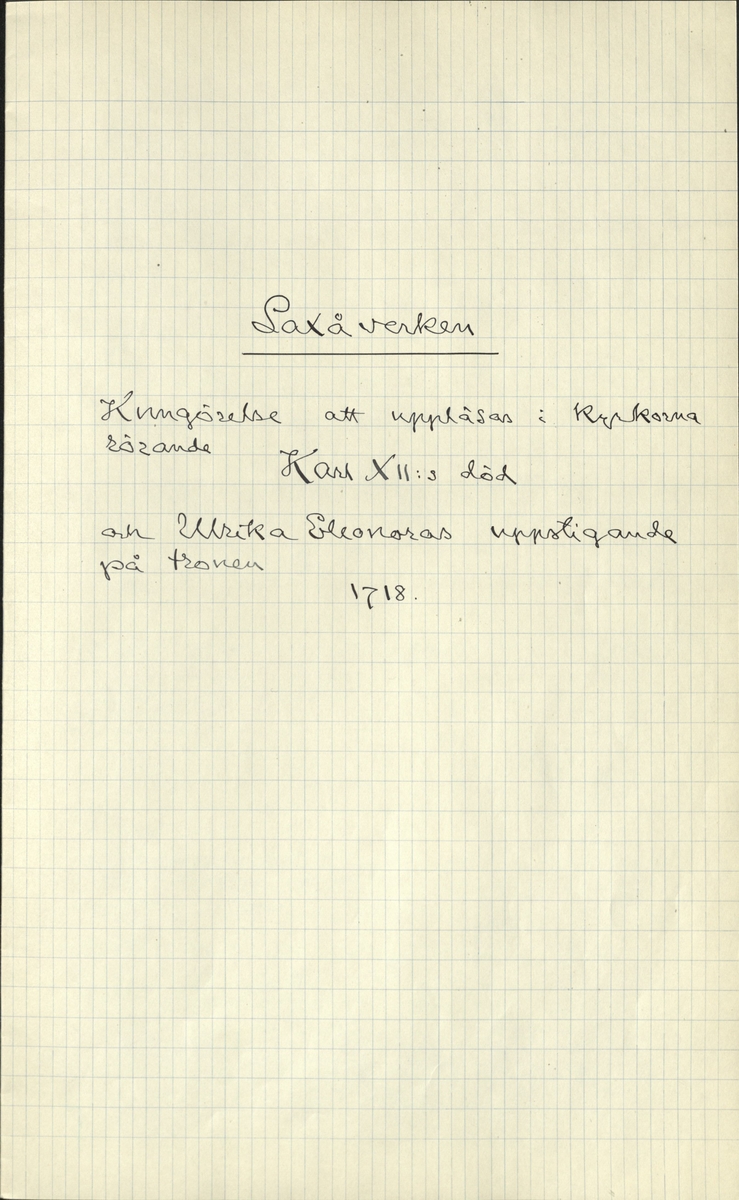 Laxå verken
Kungörelse att uppläsas i kyrkorna
rörande
Karl XII:s död
och Ulrika Eleonoras uppstigande
på tronen
1718.